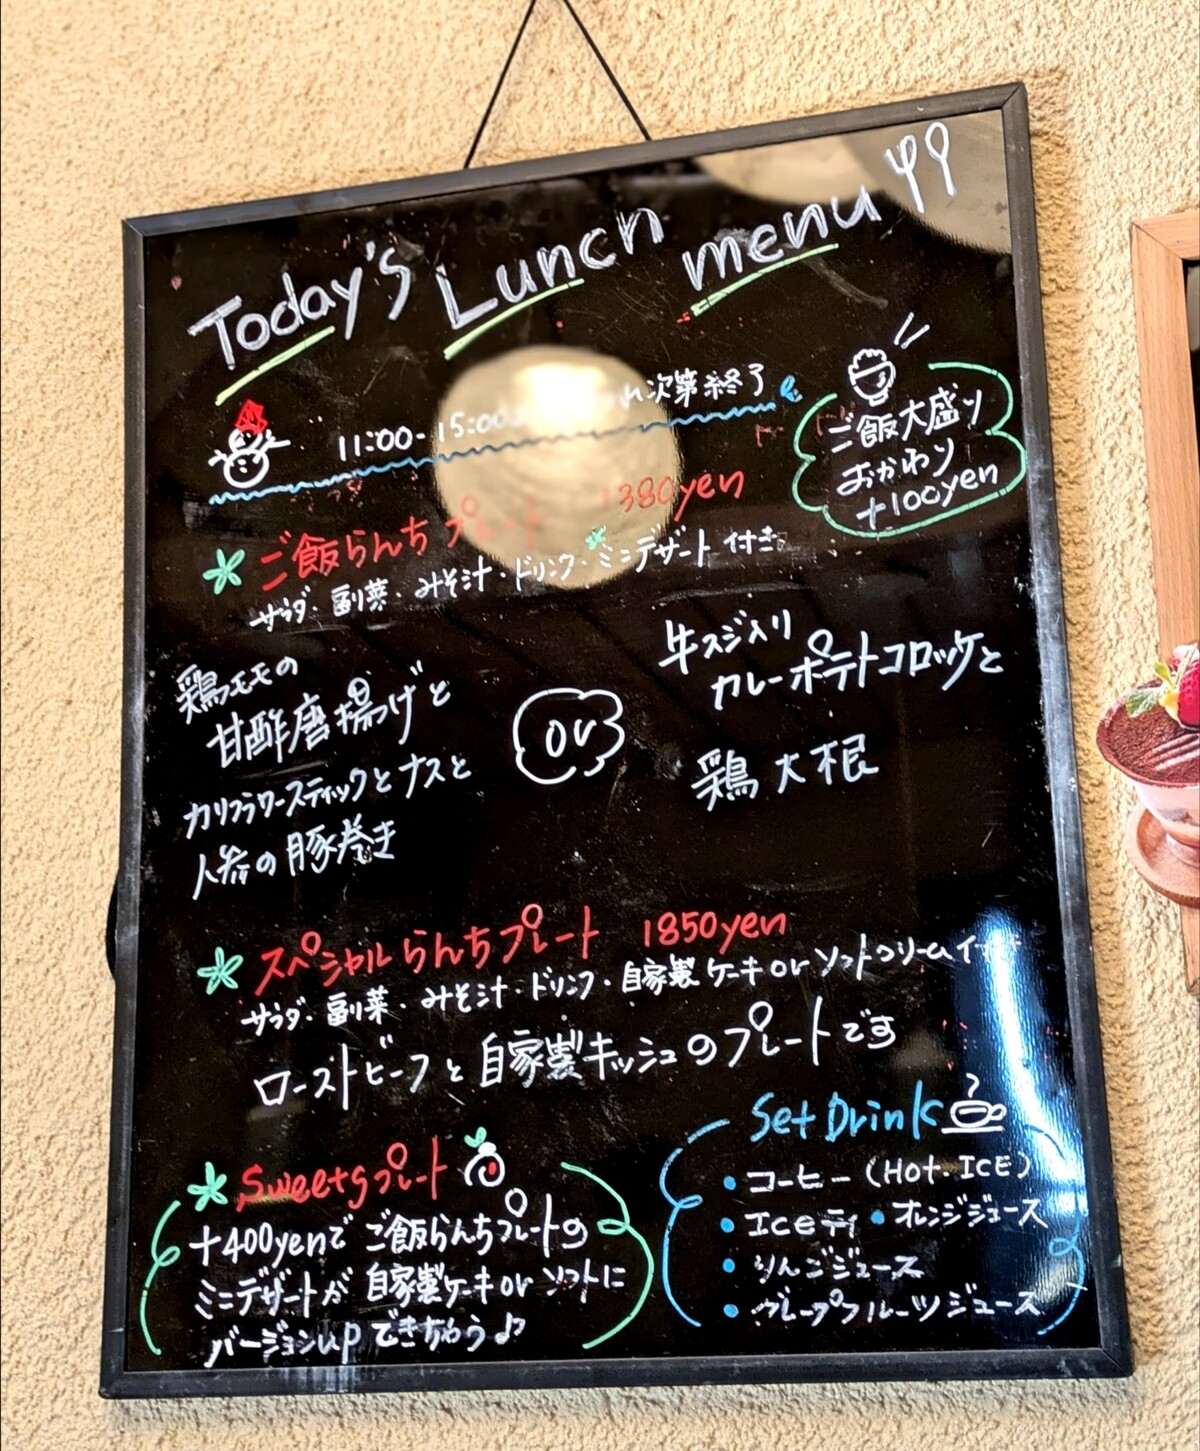 Today's Lunch menu
11:00-15:00 れ次第終了
ご飯大盛り
おかわり
+100yen
ご飯らんちプレート 1380yen
サラダ・副菜・みそ汁・ドリンク・ミニデザート付き
鶏モモの
甘酢唐揚げと
カリフラワースティックとナスと
人参の豚巻き
or
牛スジ入り
カレーポテトコロッケと
鶏大根
スペシャルらんちプレート 1850yen
サラダ・副菜・みそ汁・ドリンク・自家製ケーキorソフトクリーム付
ローストビーフと自家製キッシュのプレートです
Sweetsプレート
+400yenで ご飯らんちプレートの
ミニデザートが 自家製ケーキorソフトに
バージョンupできちゃう♪
Set Drink
・コーヒー(Hot・ICE)
・Iceティ・オレンジジュース
・りんごジュース
・グレープフルーツジュース